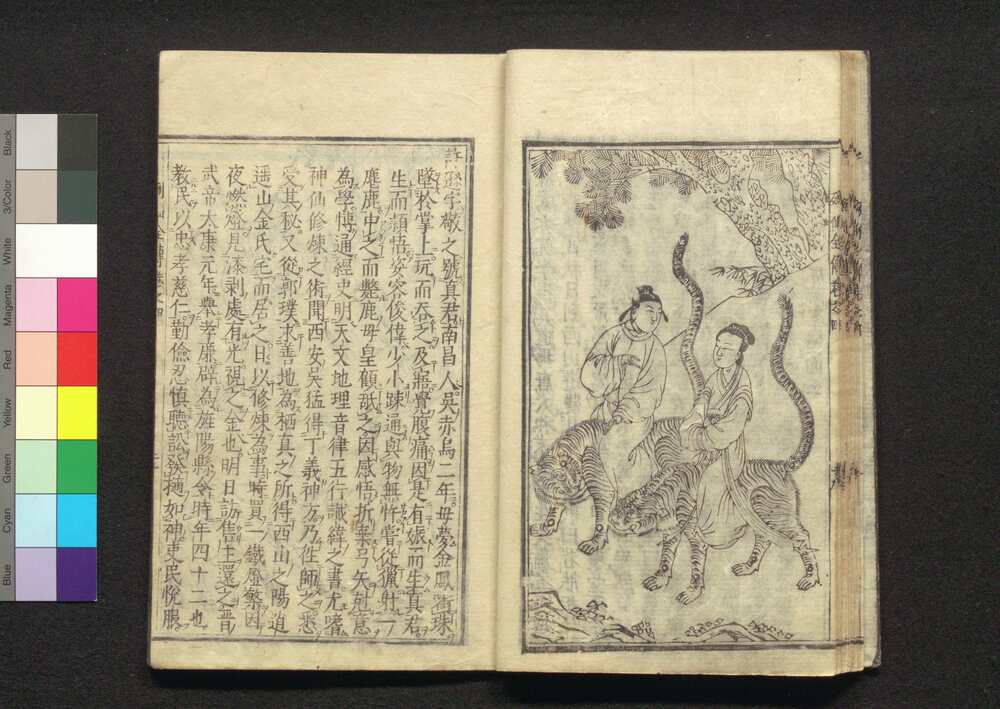 許遜字敬之號真君南昌人吳赤烏二年母夢金鳳銜珠
墜於掌上玩而吞之及寤覺腹痛因是有娠而生真君
生而穎悟姿容俊偉少小踈通與物無忤嘗從獵射一
麀鹿中之而斃鹿母皇顧舐之因感悟折棄弓矢尅意
為學博通經史明天文地理音律五行讖緯之書尤嗜
神仙修煉之術聞西安吳猛得丁義神方乃徃師之悉
受其秘又從郭璞求善地為栖真之所得西山之陽逍
遥山金氏宅而居之日以修煉為事時買一鐵燈檠因
夜燃燈見漆剥處有光視之金也明日訪售主還之晉
武帝太康元年舉孝廉辟為旌陽縣令時年四十二也
教民以忠孝慈仁勤儉忍慎聽訟發擿如神吏民悅服
Black
3/Color
White
Magenta
Red
Yellow
Green
Cyan
Blue